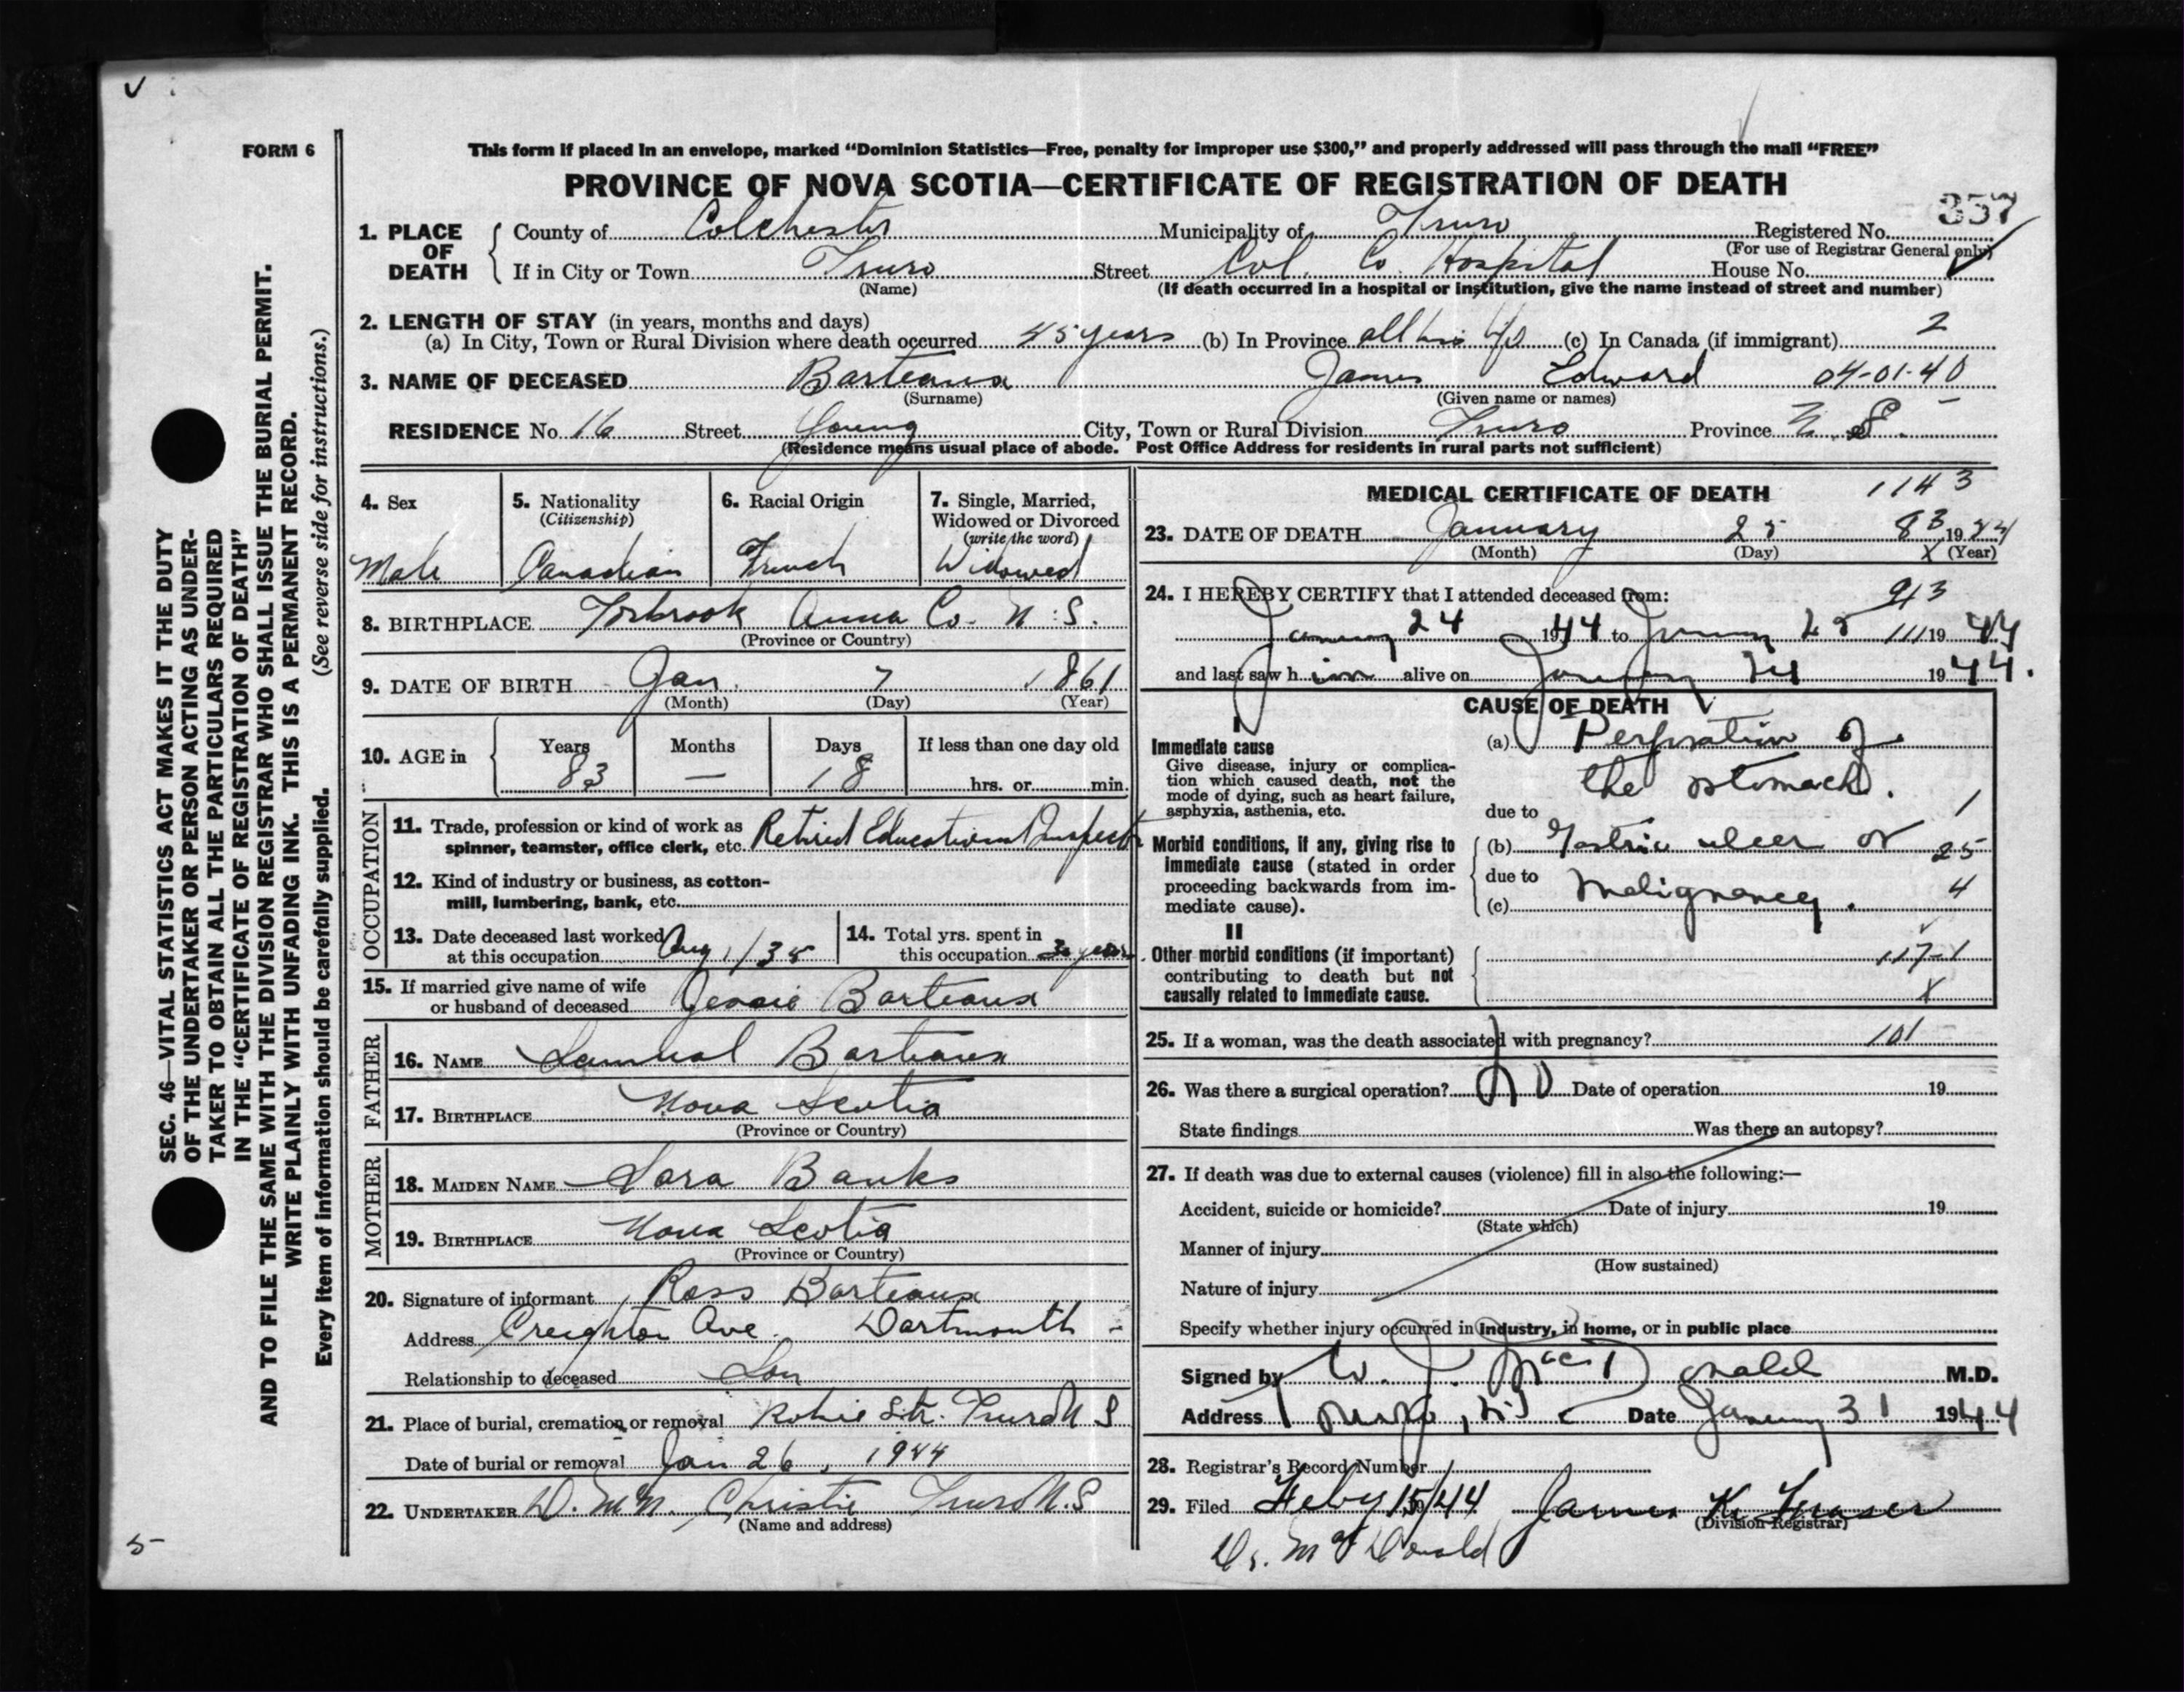 FORM 6
This form if placed in an envelope, marked “Dominion Statistics—Free, penalty for improper use $300,” and properly addressed will pass through the mail “FREE”
PROVINCE OF NOVA SCOTIA—CERTIFICATE OF REGISTRATION OF DEATH
357
1. PLACE OF DEATH County of Colchester Municipality of Truro Registered No.
(For use of Registrar General only)
If in City or Town Truro Street Col. Co. Hospital House No.
(Name) (If death occurred in a hospital or institution, give the name instead of street and number)
2. LENGTH OF STAY (in years, months and days)
(a) In City, Town or Rural Division where death occurred 45 years (b) In Province all his (c) In Canada (if immigrant) 2
3. NAME OF DECEASED Barteaux James Edward 04-01-40
(Surname) (Given name or names)
RESIDENCE No. 16 Street Young City, Town or Rural Division Truro Province N. S.
(Residence means usual place of abode. Post Office Address for residents in rural parts not sufficient)
4. Sex
Male
5. Nationality
(Citizenship)
Canadian
6. Racial Origin
French
7. Single, Married,
Widowed or Divorced
(write the word)
Widowed
8. BIRTHPLACE Torbrook Anna Co. N.S.
(Province or Country)
9. DATE OF BIRTH Jan. 7 1861
(Month) (Day) (Year)
10. AGE in Years Months Days If less than one day old
83 — 18 hrs. or min.
OCCUPATION
11. Trade, profession or kind of work as
spinner, teamster, office clerk, etc. Retired Educational Inspector
12. Kind of industry or business, as cotton-
mill, lumbering, bank, etc.
13. Date deceased last worked
at this occupation Aug 1/35
14. Total yrs. spent in
this occupation years
15. If married give name of wife
or husband of deceased Jessie Barteaux
FATHER
16. NAME Samual Barteaux
17. BIRTHPLACE Nova Scotia
(Province or Country)
MOTHER
18. MAIDEN NAME Sara Banks
19. BIRTHPLACE Nova Scotia
(Province or Country)
20. Signature of informant Ross Barteaux
Address Creighton Ave. Dartmouth
Relationship to deceased Son
21. Place of burial, cremation or removal Robie Str. Truro N S
Date of burial or removal Jan 26, 1944
22. UNDERTAKER Christie Truro N.S
(Name and address)
MEDICAL CERTIFICATE OF DEATH 1143
23. DATE OF DEATH January 25 83 1944
(Month) (Day) (Year)
24. I HEREBY CERTIFY that I attended deceased from:
January 24 1944 to January 25 1944
and last saw him alive on January 24 1944.
CAUSE OF DEATH
I
Immediate cause
Give disease, injury or complica-
tion which caused death, not the
mode of dying, such as heart failure,
asphyxia, asthenia, etc.
(a) Perforation of
the stomach.
due to 1
Morbid conditions, if any, giving rise to
immediate cause (stated in order
proceeding backwards from im-
mediate cause).
(b) Gastric ulcer or 25
due to malignancy. 4
(c)
II
Other morbid conditions (if important)
contributing to death but not
causally related to immediate cause.
117-1
X
25. If a woman, was the death associated with pregnancy? 101
26. Was there a surgical operation? no Date of operation 19
State findings Was there an autopsy?
27. If death was due to external causes (violence) fill in also the following:—
Accident, suicide or homicide? Date of injury 19
(State which)
Manner of injury
(How sustained)
Nature of injury
Specify whether injury occurred in industry, in home, or in public place
Signed by W. J. MacDonald M.D.
Address Truro, N.S. Date January 31 1944
28. Registrar's Record Number
29. Filed Feby 15/44 James K. Fraser
(Division Registrar)
Dr. McDonald
5
SEC. 46—VITAL STATISTICS ACT MAKES IT THE DUTY
OF THE UNDERTAKER OR PERSON ACTING AS UNDER-
TAKER TO OBTAIN ALL THE PARTICULARS REQUIRED
IN THE “CERTIFICATE OF REGISTRATION OF DEATH”
AND TO FILE THE SAME WITH THE DIVISION REGISTRAR WHO SHALL ISSUE THE BURIAL PERMIT.
WRITE PLAINLY WITH UNFADING INK. THIS IS A PERMANENT RECORD.
Every item of information should be carefully supplied. (See reverse side for instructions.)